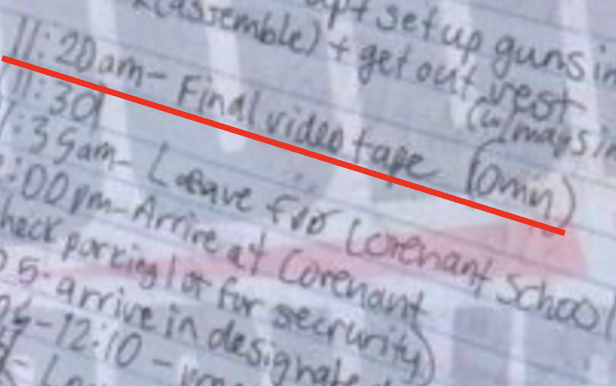 (assemble) + get out vest
set up guns in
11:20am - Final video tape (
11:30
:35am - Leave for Covenant School
:00pm - Arrive at Covenant
heck parking lot for secrurity)
5 - arrive in designate
-12:10 -